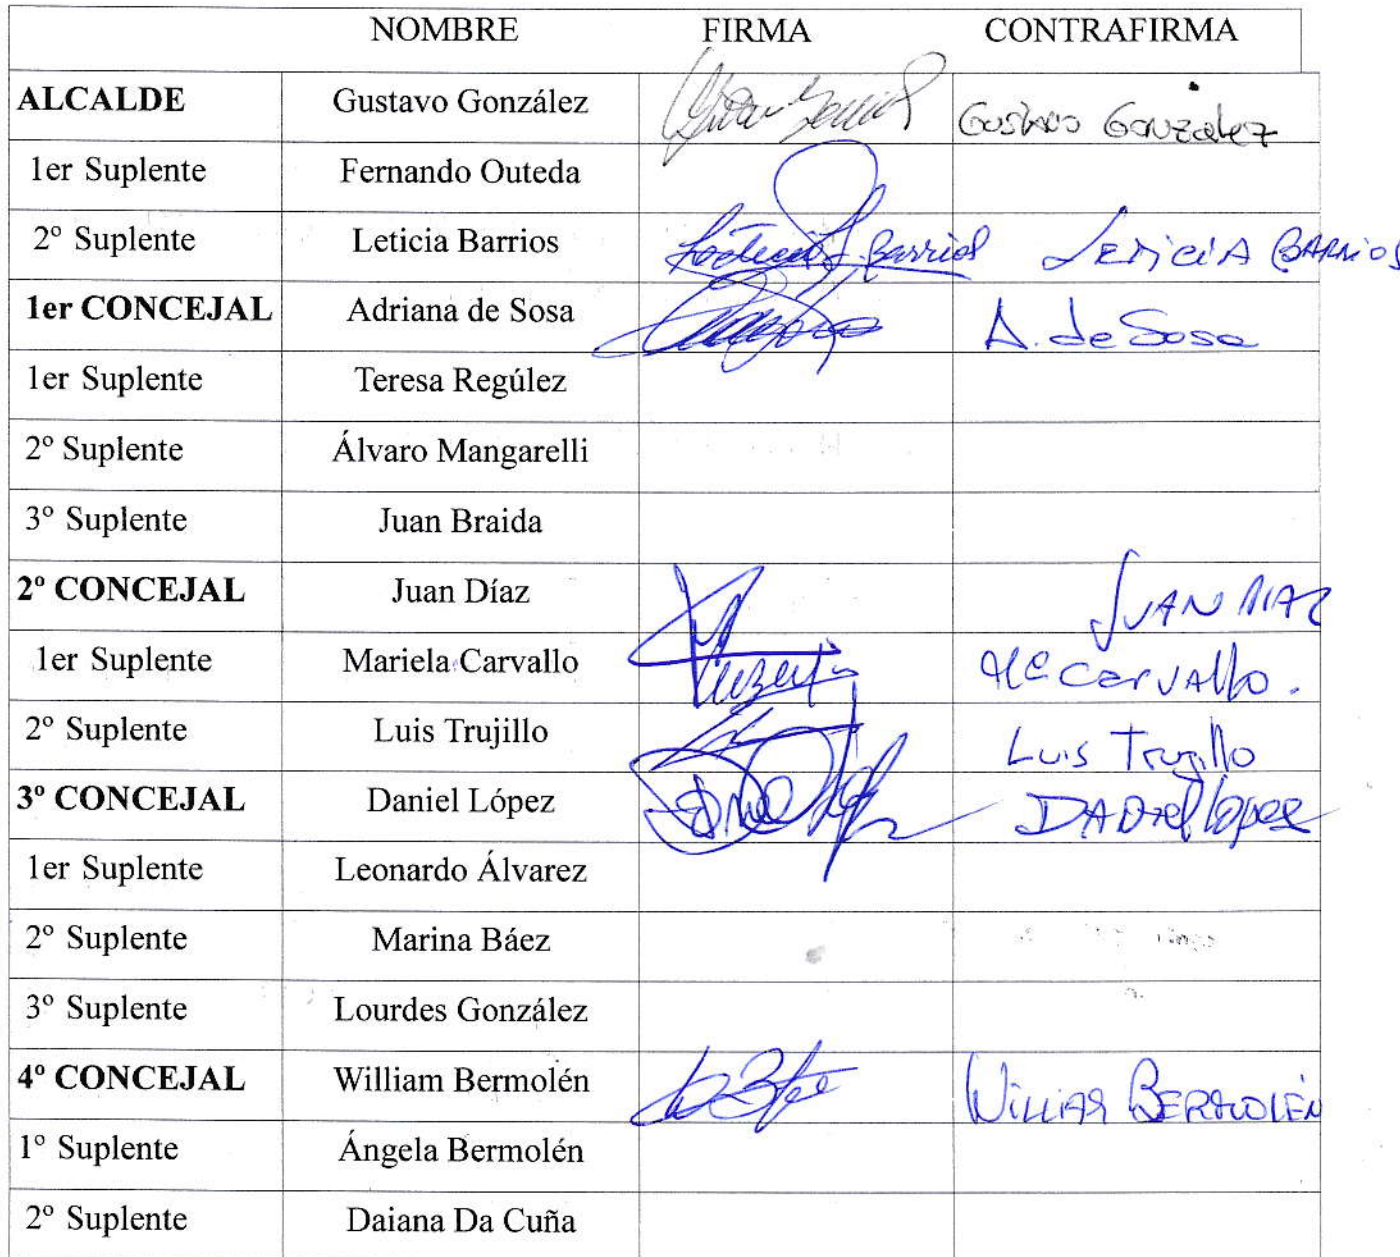 NOMBRE FIRMA CONTRAFIRMA
ALCALDE Gustavo González Gustavo González
1er Suplente Fernando Outeda
2º Suplente Leticia Barrios Leticia L. Barrios LETICIA BARRIOS
1er CONCEJAL Adriana de Sosa A. de Sosa
1er Suplente Teresa Regúlez
2º Suplente Álvaro Mangarelli
3º Suplente Juan Braida
2º CONCEJAL Juan Díaz JUAN DIAZ
1er Suplente Mariela Carvallo Mª Carvallo.
2º Suplente Luis Trujillo Luis Trujillo
3º CONCEJAL Daniel López DANiel lopez
1er Suplente Leonardo Álvarez
2º Suplente Marina Báez
3º Suplente Lourdes González
4º CONCEJAL William Bermolén WILLIAM BERMOLÉN
1º Suplente Ángela Bermolén
2º Suplente Daiana Da Cuña